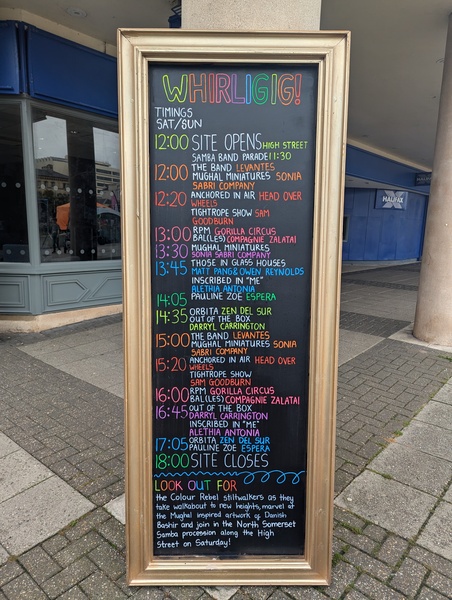 WHIRLIGIG!
TIMINGS
SAT/SUN
12:00 SITE OPENS HIGH STREET
SAMBA BAND PARADE 11:30
12:00 THE BAND LEVANTES
MUGHAL MINIATURES SONIA
SABRI COMPANY
12:20 ANCHORED IN AIR HEAD OVER
WHEELS
TIGHTROPE SHOW SAM
GOODBURN
13:00 RPM GORILLA CIRCUS
BAL(LES) COMPAGNIE ZALATAI
13:30 MUGHAL MINIATURES
SONIA SABRI COMPANY
13:45 THOSE IN GLASS HOUSES
MATT PANG & OWEN REYNOLDS
INSCRIBED IN "ME"
ALETHIA ANTONIA
14:05 PAULINE ZOE ESPERA
14:35 ORBITA ZEN DEL SUR
OUT OF THE BOX
DARRYL CARRINGTON
15:00 THE BAND LEVANTES
MUGHAL MINIATURES SONIA
SABRI COMPANY
15:20 ANCHORED IN AIR HEAD OVER
WHEELS
TIGHTROPE SHOW
SAM GOODBURN
16:00 RPM GORILLA CIRCUS
BAL(LES) COMPAGNIE ZALATAI
16:45 OUT OF THE BOX
DARRYL CARRINGTON
INSCRIBED IN "ME"
ALETHIA ANTONIA
17:05 ORBITA ZEN DEL SUR
PAULINE ZOE ESPERA
18:00 SITE CLOSES
LOOK OUT FOR
the Colour Rebel stiltwalkers as they
take walkabout to new heights, marvel at
the Mughal inspired artwork of Danish
Bashir and join in the North Somerset
Samba procession along the High
Street on Saturday!
HALIFAX